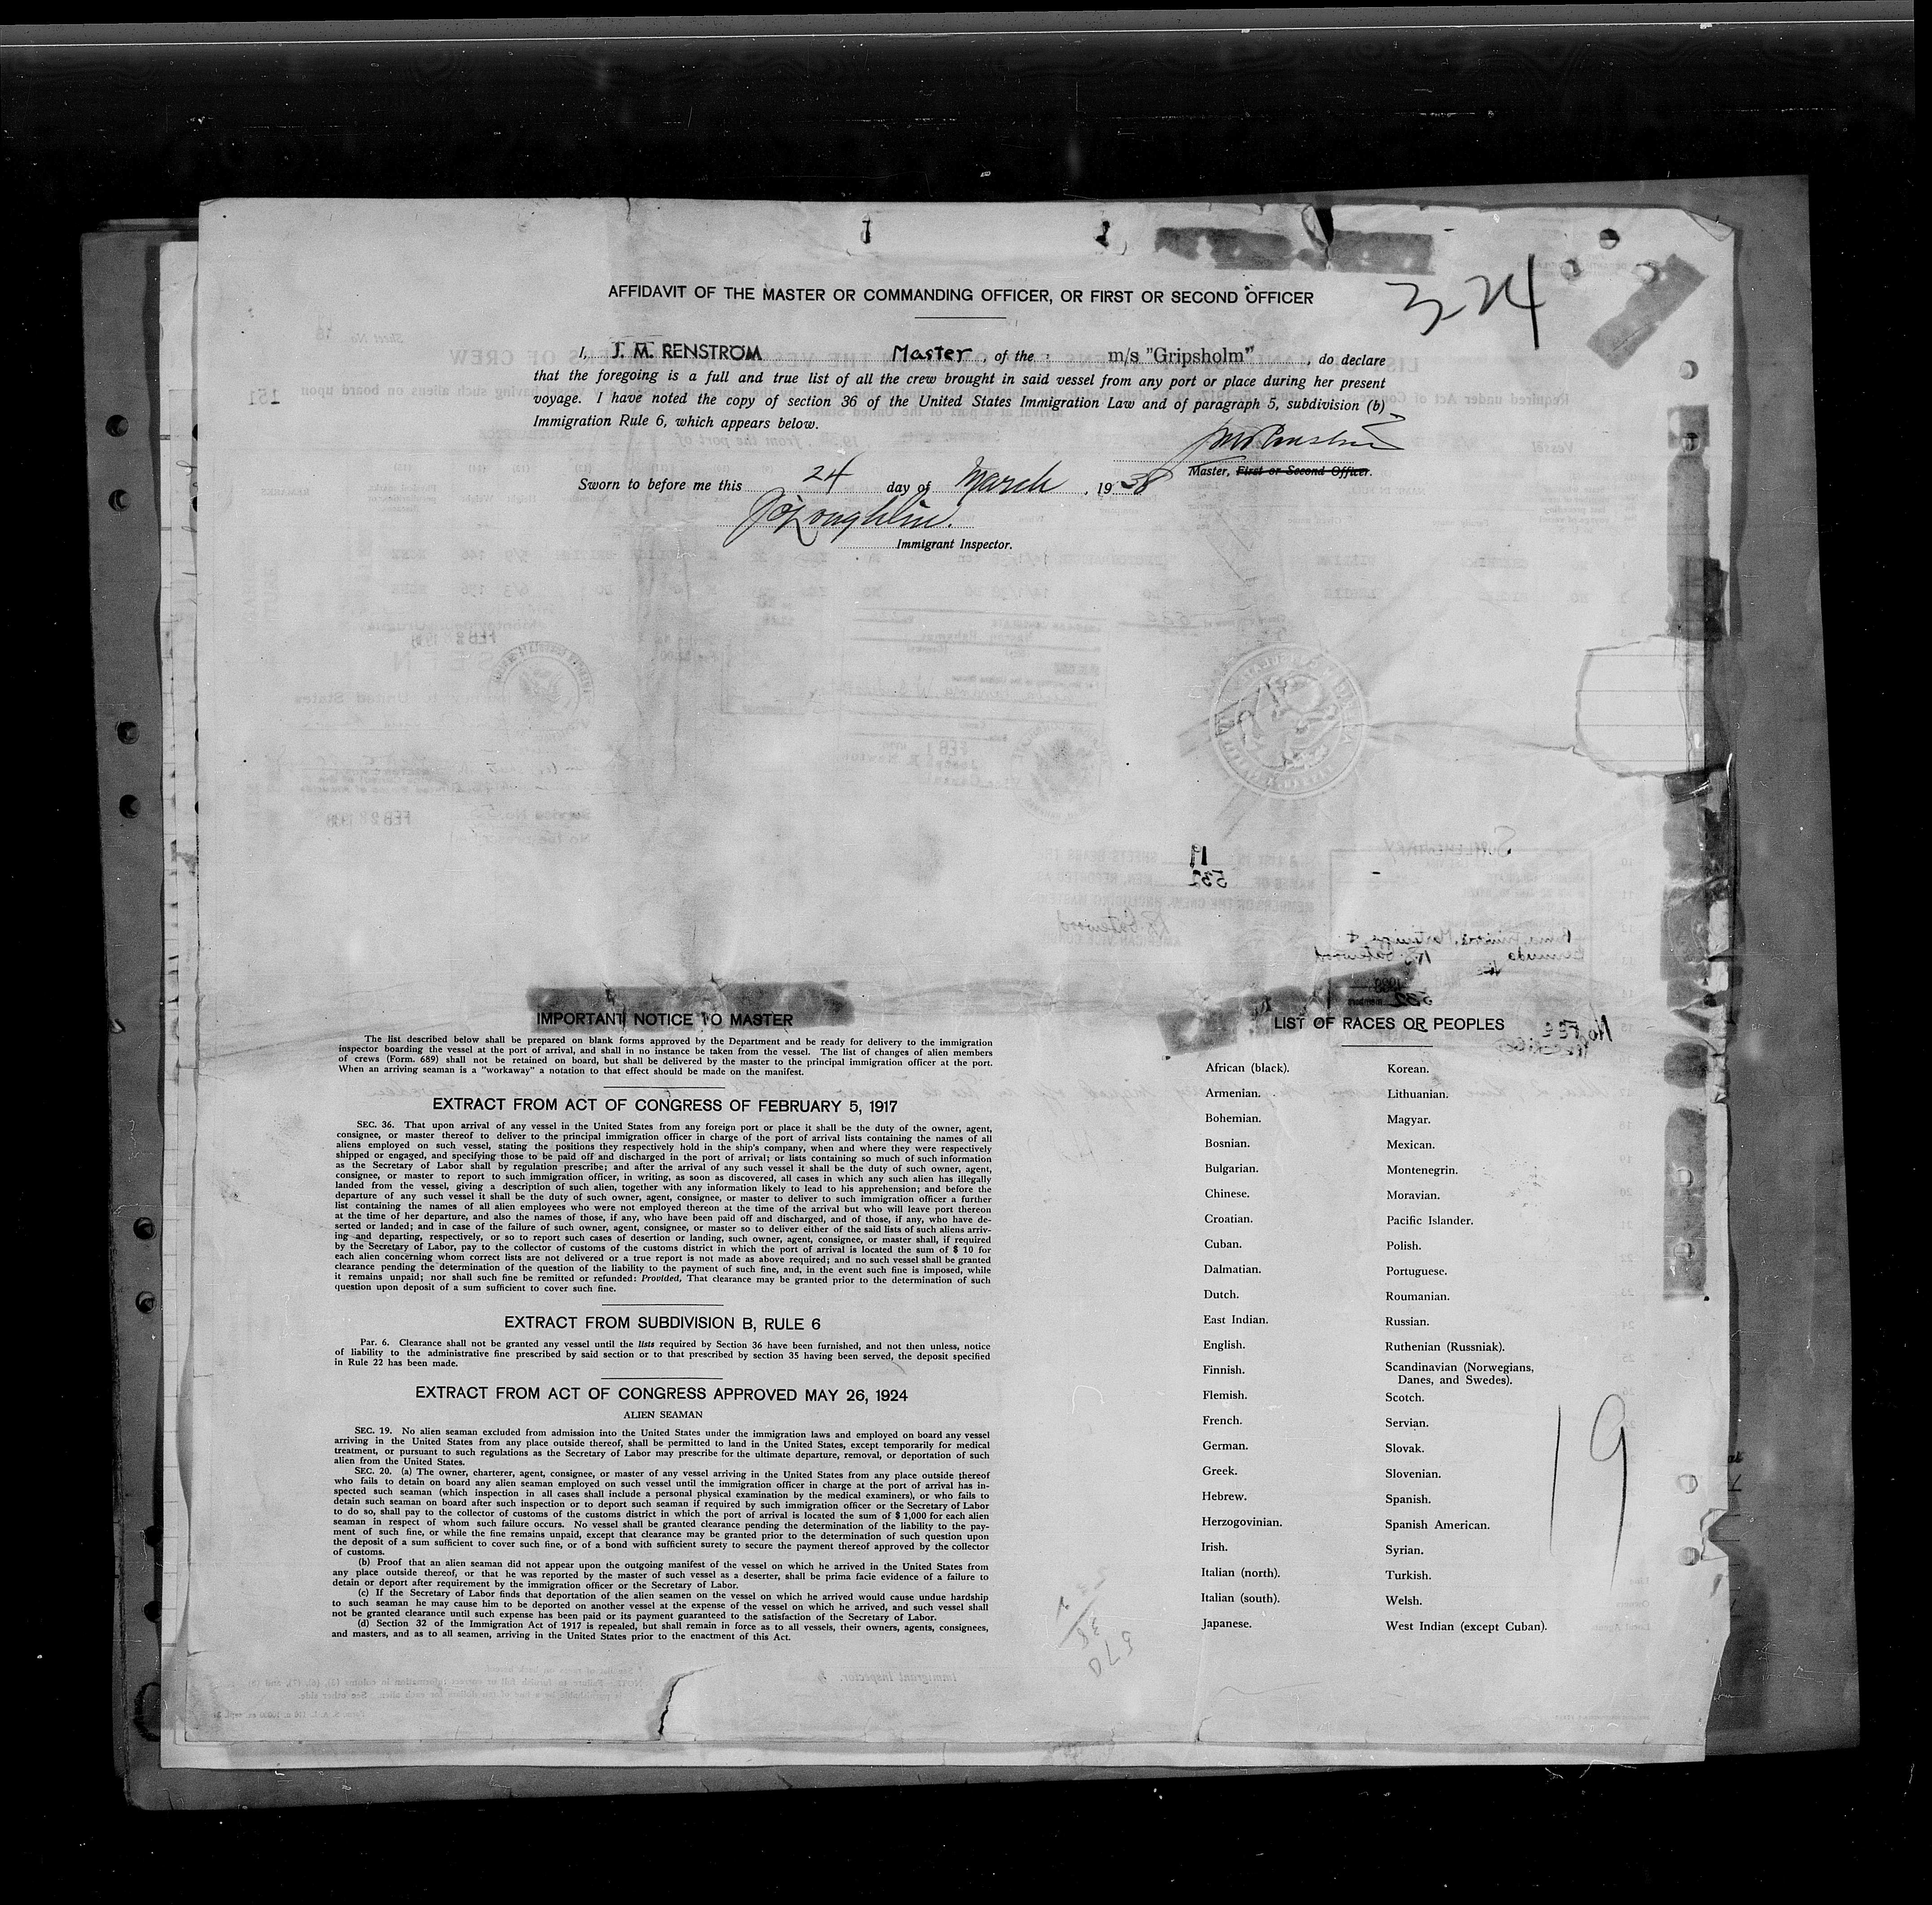 AFFIDAVIT OF THE MASTER OR COMMANDING OFFICER, OR FIRST OR SECOND OFFICER
324
I, J. M. RENSTROM Master, of the m/s "Gripsholm", do declare
that the foregoing is a full and true list of all the crew brought in said vessel from any port or place during her present
voyage. I have noted the copy of section 36 of the United States Immigration Law and of paragraph 5, subdivision (b)
Immigration Rule 6, which appears below.
Master, First or Second Officer.
Sworn to before me this 24 day of March, 1938
J O'Loughlin.
Immigrant Inspector.
IMPORTANT NOTICE TO MASTER
The list described below shall be prepared on blank forms approved by the Department and be ready for delivery to the immigration
inspector boarding the vessel at the port of arrival, and shall in no instance be taken from the vessel. The list of changes of alien members
of crews (Form. 689) shall not be retained on board, but shall be delivered by the master to the principal immigration officer at the port.
When an arriving seaman is a "workaway" a notation to that effect should be made on the manifest.
EXTRACT FROM ACT OF CONGRESS OF FEBRUARY 5, 1917
SEC. 36. That upon arrival of any vessel in the United States from any foreign port or place it shall be the duty of the owner, agent,
consignee, or master thereof to deliver to the principal immigration officer in charge of the port of arrival lists containing the names of all
aliens employed on such vessel, stating the positions they respectively hold in the ship's company, when and where they were respectively
shipped or engaged, and specifying those to be paid off and discharged in the port of arrival; or lists containing so much of such information
as the Secretary of Labor shall by regulation prescribe; and after the arrival of any such vessel it shall be the duty of such owner, agent,
consignee, or master to report to such immigration officer, in writing, as soon as discovered, all cases in which any such alien has illegally
landed from the vessel, giving a description of such alien, together with any information likely to lead to his apprehension; and before the
departure of any such vessel it shall be the duty of such owner, agent, consignee, or master to deliver to such immigration officer a further
list containing the names of all alien employees who were not employed thereon at the time of the arrival but who will leave port thereon
at the time of her departure, and also the names of those, if any, who have been paid off and discharged, and of those, if any, who have de-
serted or landed; and in case of the failure of such owner, agent, consignee, or master so to deliver either of the said lists of such aliens arriv-
ing and departing, respectively, or so to report such cases of desertion or landing, such owner, agent, consignee, or master shall, if required
by the Secretary of Labor, pay to the collector of customs of the customs district in which the port of arrival is located the sum of $ 10 for
each alien concerning whom correct lists are not delivered or a true report is not made as above required; and no such vessel shall be granted
clearance pending the determination of the question of the liability to the payment of such fine, and, in the event such fine is imposed, while
it remains unpaid; nor shall such fine be remitted or refunded: Provided, That clearance may be granted prior to the determination of such
question upon deposit of a sum sufficient to cover such fine.
EXTRACT FROM SUBDIVISION B, RULE 6
Par. 6. Clearance shall not be granted any vessel until the lists required by Section 36 have been furnished, and not then unless, notice
of liability to the administrative fine prescribed by said section or to that prescribed by section 35 having been served, the deposit specified
in Rule 22 has been made.
EXTRACT FROM ACT OF CONGRESS APPROVED MAY 26, 1924
ALIEN SEAMAN
SEC. 19. No alien seaman excluded from admission into the United States under the immigration laws and employed on board any vessel
arriving in the United States from any place outside thereof, shall be permitted to land in the United States, except temporarily for medical
treatment, or pursuant to such regulations as the Secretary of Labor may prescribe for the ultimate departure, removal, or deportation of such
alien from the United States.
SEC. 20. (a) The owner, charterer, agent, consignee, or master of any vessel arriving in the United States from any place outside thereof
who fails to detain on board any alien seaman employed on such vessel until the immigration officer in charge at the port of arrival has in-
spected such seaman (which inspection in all cases shall include a personal physical examination by the medical examiners), or who fails to
detain such seaman on board after such inspection or to deport such seaman if required by such immigration officer or the Secretary of Labor
to do so, shall pay to the collector of customs of the customs district in which the port of arrival is located the sum of $ 1,000 for each alien
seaman in respect of whom such failure occurs. No vessel shall be granted clearance pending the determination of the liability to the pay-
ment of such fine, or while the fine remains unpaid, except that clearance may be granted prior to the determination of such question upon
the deposit of a sum sufficient to cover such fine, or of a bond with sufficient surety to secure the payment thereof approved by the collector
of customs.
(b) Proof that an alien seaman did not appear upon the outgoing manifest of the vessel on which he arrived in the United States from
any place outside thereof, or that he was reported by the master of such vessel as a deserter, shall be prima facie evidence of a failure to
detain or deport after requirement by the immigration officer or the Secretary of Labor.
(c) If the Secretary of Labor finds that deportation of the alien seamen on the vessel on which he arrived would cause undue hardship
to such seaman he may cause him to be deported on another vessel at the expense of the vessel on which he arrived, and such vessel shall
not be granted clearance until such expense has been paid or its payment guaranteed to the satisfaction of the Secretary of Labor.
(d) Section 32 of the Immigration Act of 1917 is repealed, but shall remain in force as to all vessels, their owners, agents, consignees,
and masters, and as to all seamen, arriving in the United States prior to the enactment of this Act.
LIST OF RACES OR PEOPLES
African (black).
Armenian.
Bohemian.
Bosnian.
Bulgarian.
Chinese.
Croatian.
Cuban.
Dalmatian.
Dutch.
East Indian.
English.
Finnish.
Flemish.
French.
German.
Greek.
Hebrew.
Herzogovinian.
Irish.
Italian (north).
Italian (south).
Japanese.
Korean.
Lithuanian.
Magyar.
Mexican.
Montenegrin.
Moravian.
Pacific Islander.
Polish.
Portuguese.
Roumanian.
Russian.
Ruthenian (Russniak).
Scandinavian (Norwegians,
Danes, and Swedes).
Scotch.
Servian.
Slovak.
Slovenian.
Spanish.
Spanish American.
Syrian.
Turkish.
Welsh.
West Indian (except Cuban).
19
38
570